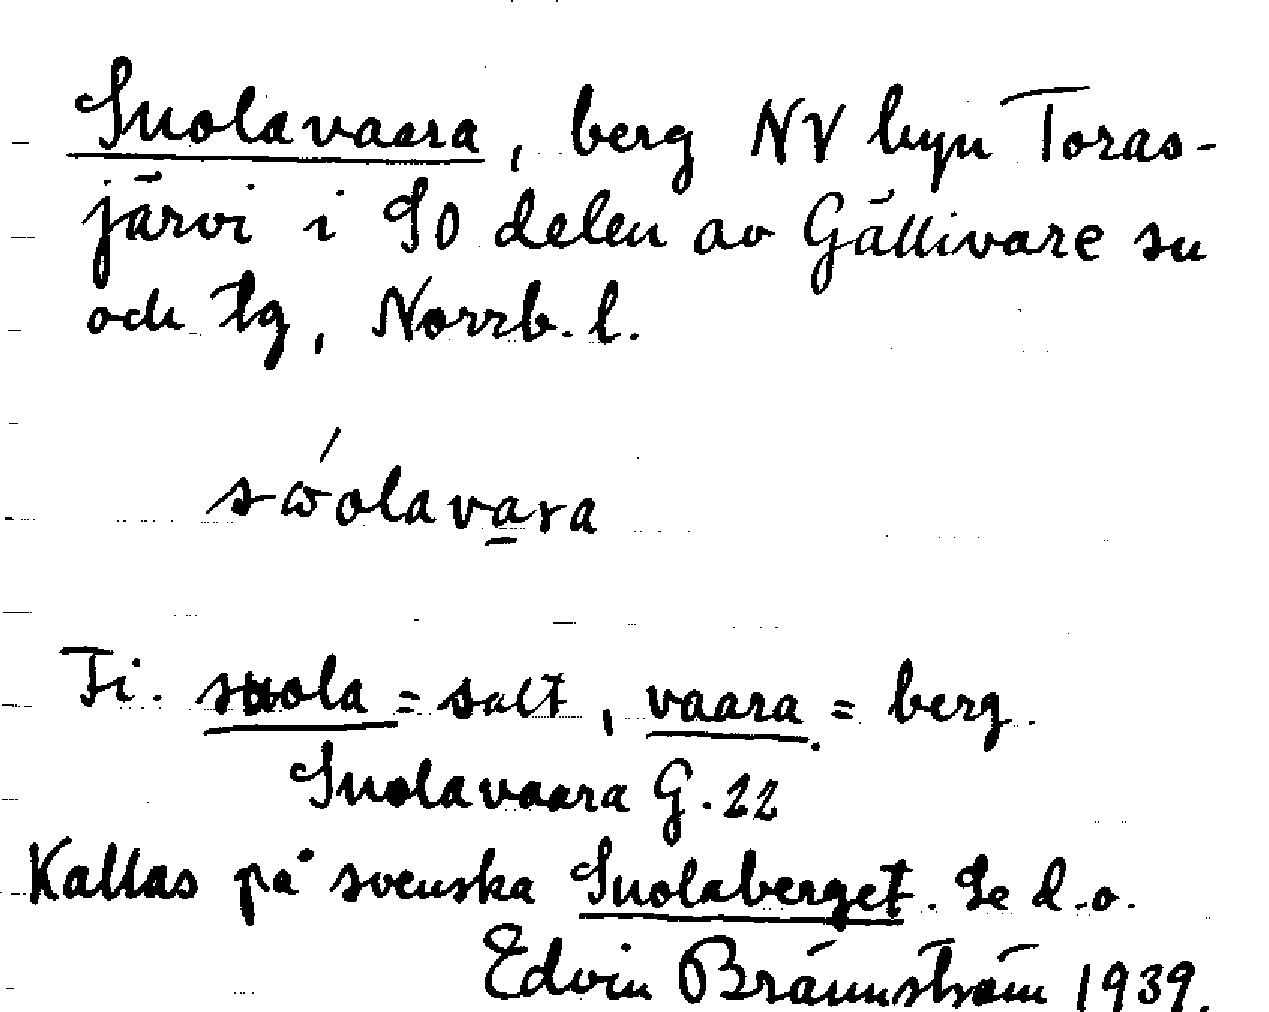 Suolavaara, berg NV byn Toras-
järvi i SO delen av Gällivare sn
och tg, Norrb. l.
sώolava̱ra
Fi. suola = salt, vaara = berg.
Suolavaara G. 22
Kallas på svenska Suolaberget. Se d.o.
Edvin Brännström 1939.